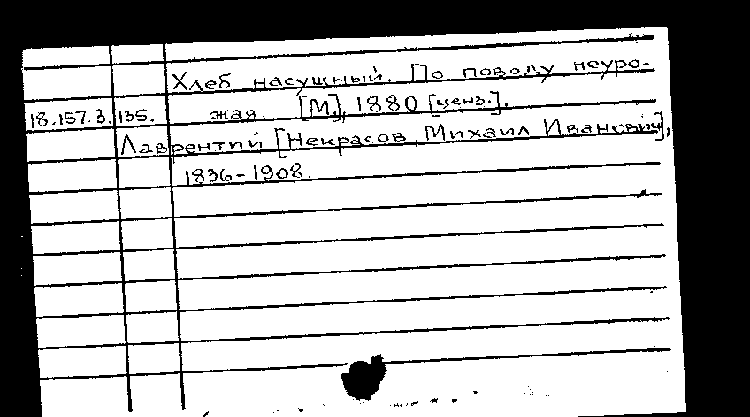 Хлеб насущный. По поводу неуро-
18.157.3.135. жая. [М.], 1880 [ценз.].
Лаврентий [Некрасов, Михаил Иванович],
1836-1908.